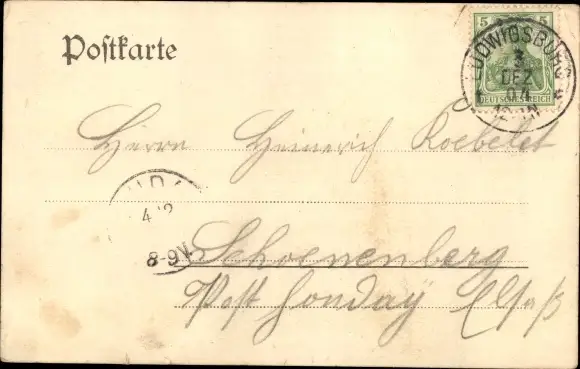 Postkarte
5 5
DEUTSCHES REICH
LUDWIGSBURG
3
DEZ
04
Herrn Heinrich
4 12
8-9V.
Schoenenberg
Post Hondaÿ Elsaß